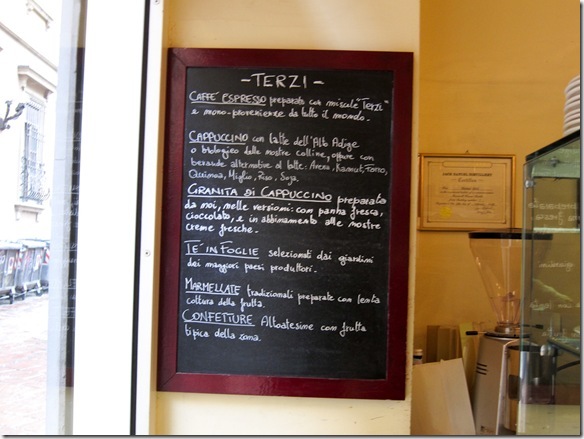 -TERZI-
CAFFÈ ESPRESSO preparato con miscule "Terzi"
e mono-provenienze da tutto il mondo.
CAPPUCCINO con latte dell'Alto Adige
o biologico delle nostre colline, oppure con
bevande alternative al latte: Avena, Kamut, Farro,
Quinoa, Miglio, Riso, Soja.
GRANITA DI CAPPUCCINO preparata
da noi, nelle versioni: con panna fresca,
cioccolato, e in abbinamento alle nostre
creme fresche.
TÈ IN FOGLIE selezionati dai giardini
dei maggiori paesi produttori.
MARMELLATE tradizionali preparate con lenta
cottura della frutta.
CONFETTURE Altoatesine con frutta
tipica della zona.